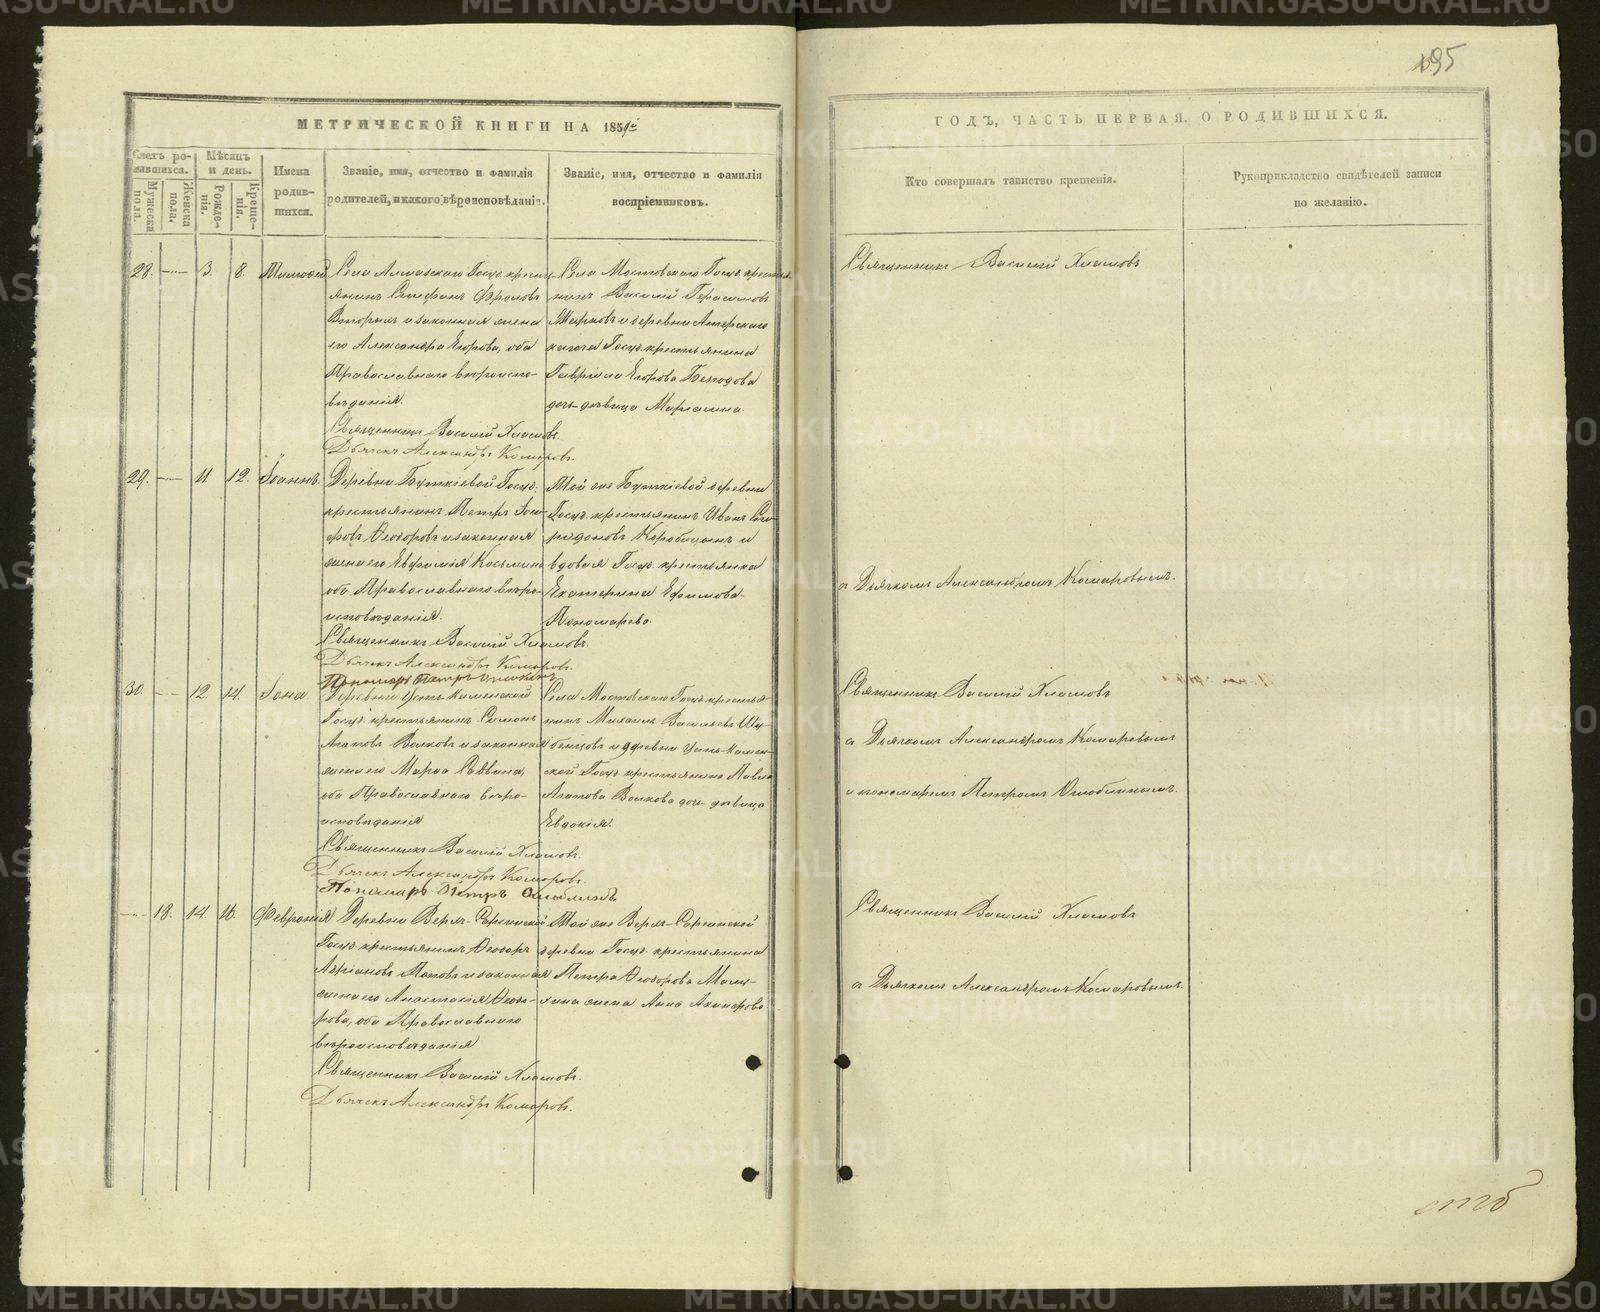 195
МЕТРИЧЕСКОЙ КНИГИ НА 1859й
ГОДЪ, ЧАСТЬ ПЕРВАЯ, О РОДИВШИХСЯ.
Счетъ родившихся.
Мужеска пола.
Женска пола.
Мѣсяцъ и день.
Рожденія.
Крещенія.
Имена родившихся.
Званіе, имя, отчество и фамилія родителей, и какого вѣроисповѣданія.
Званіе, имя, отчество и фамилія воспріемниковъ.
Кто совершалъ таинство крещенія.
Рукоприкладство свидѣтелей записи по желанію.
28. — 3. 8. Тимофей
Села Госуд. кресть-
янинъ Стефанъ Фроловъ
Вторыхъ и законная жена
его Александра Егорова, оба
Православнаго вѣроиспо-
вѣданія.
Священникъ Василій Хламовъ.
Дьячекъ Александръ Комаровъ.
Села Мостовскаго Госуд. кресть-
нинъ Василій Герасимовъ
Жарковъ и деревни
Госуд. крестьянина
Гавріила Егорова
дочь девица Маріамна.
Священникъ Василій Хламовъ
29. — 11. 12. Іоаннъ.
Деревни Госуд.
крестьянинъ Петръ
Ѳеодоровъ и законная
жена его Евфимія Косьмина
оба Православнаго вѣро-
исповѣданія.
Священникъ Василій Хламовъ.
Дьячекъ Александръ Комаровъ.
Пономарь Петръ
Той же деревни
Госуд. крестьянинъ Иванъ Спи-
ридоновъ Коробицынъ и
вдовая Госуд. крестьянка
Екатерина Ефимова
Пономарева
с Дьячкомъ Александромъ Комаровымъ.
30. — 12. 14. Іона
Деревни Усть-Каменской
Госуд. крестьянинъ Симонъ
Агаповъ Волковъ и законная
жена его Марѳа Саввина,
оба Православнаго вѣро-
исповѣданія
Священникъ Василій Хламовъ.
Дьячекъ Александръ Комаровъ.
Пономарь Петръ Оглоблинъ.
Села Мостовскаго Госуд. крестья-
нинъ Михаилъ Васильевъ Ще-
бенцовъ и деревни Усть-Камен-
ской Госуд. крестьянина Павла
Агапова Волкова дочь девица
Евдокія.
Священникъ Василій Хламовъ
с Дьячкомъ Александромъ Комаровымъ
и пономаремъ Петромъ Оглоблинымъ.
— 18. 14. 16. Февронія
Деревни
Госуд. крестьянинъ Ѳеодоръ
Адріановъ Поповъ и законная
жена его Анастасія Ѳеодо-
рова, оба Православнаго
вѣроисповѣданія
Священникъ Василій Хламовъ.
Дьячекъ Александръ Комаровъ.
Той же
деревни Госуд. крестьянина
Петра Ѳеодорова
жена Анна
Священникъ Василій Хламовъ
с Дьячкомъ Александромъ Комаровымъ.
METRIKI.GASO-URAL.RU